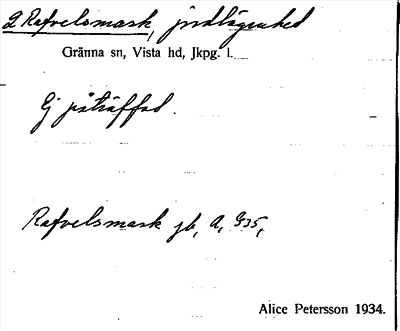 2 Rafvelsmark, jordlägenhed
Gränna sn, Vista hd, Jkpg. l.
Ej påträffad.
Rafvelsmark jb, a, 935,
Alice Petersson 1934.